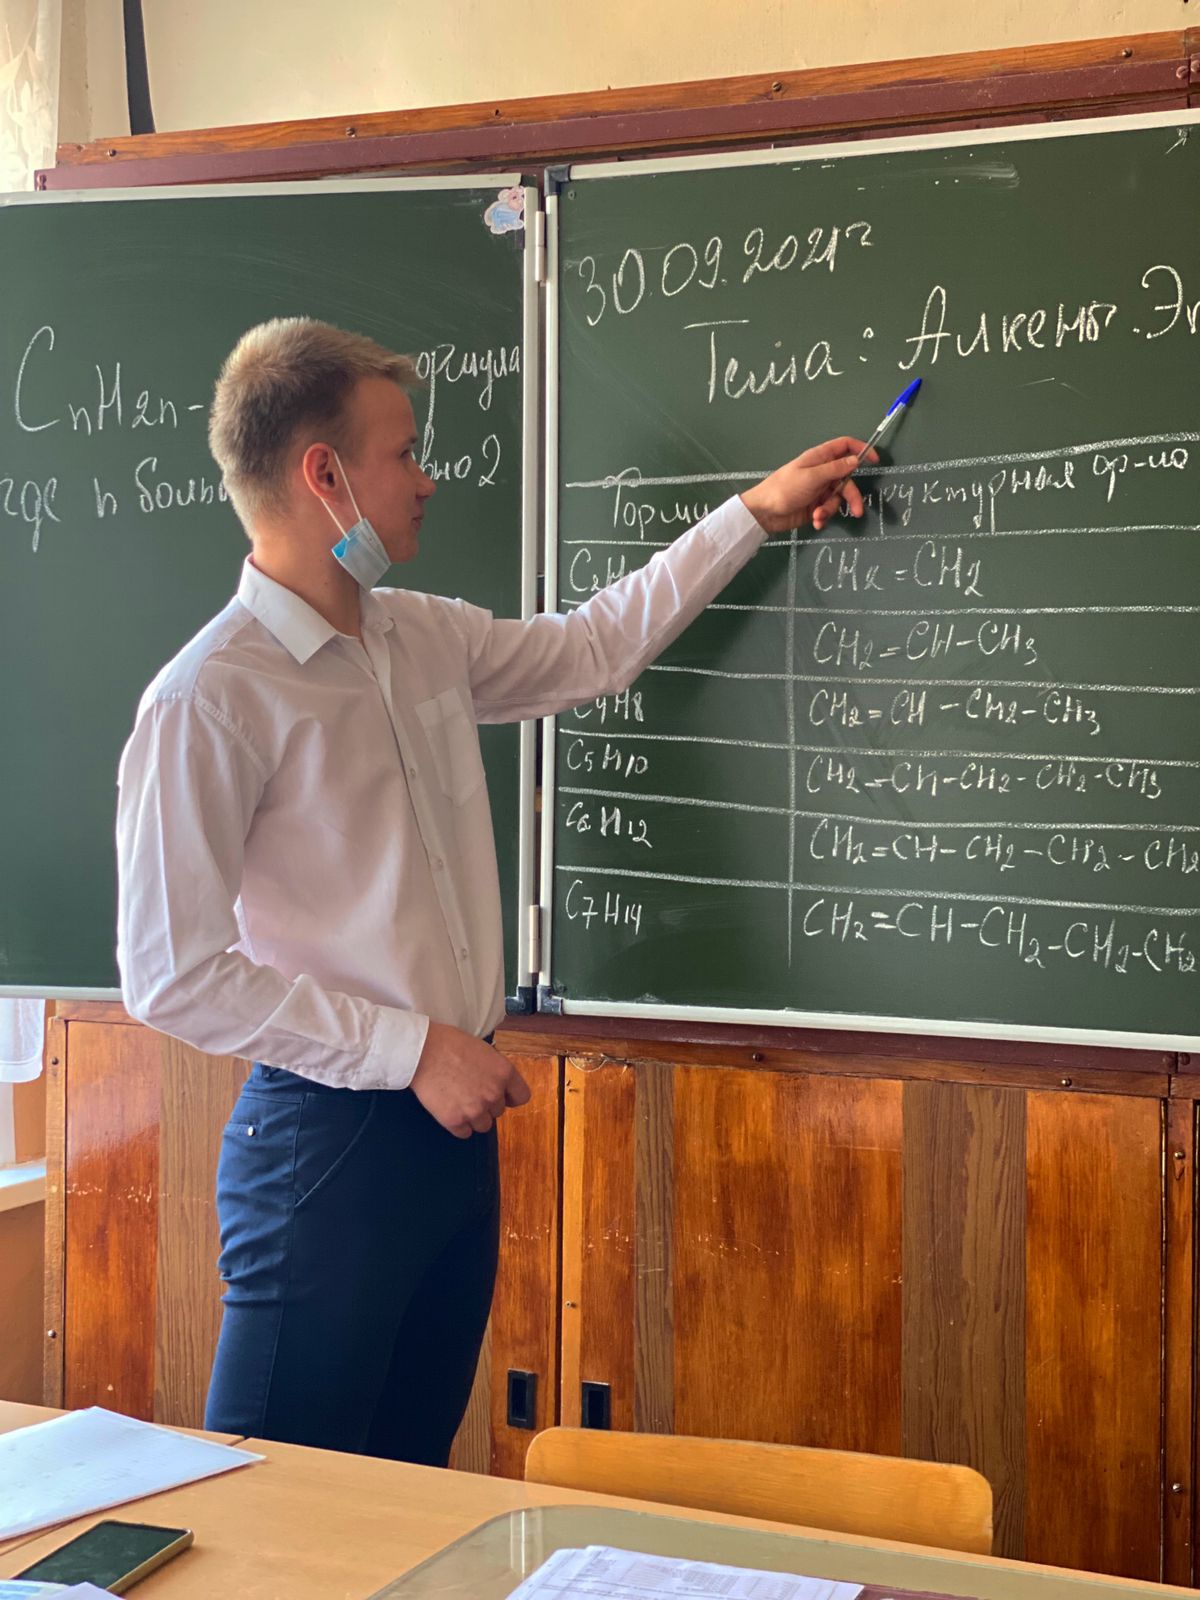 CnH2n-
где n
30.09.2021г
Тема: Алкены.
структурная ф-ла
CH2=CH2
CH2=CH-CH3
C4H8 CH2=CH-CH2-CH3
C5H10 CH2=CH-CH2-CH2-CH3
C6H12 CH2=CH-CH2-CH2-CH2
C7H14 CH2=CH-CH2-CH2-CH2